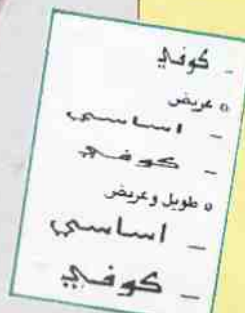 - كوفي
o عريض
- اساسي
- كوفي
o طويل وعريض
- اساسي
- كوفي